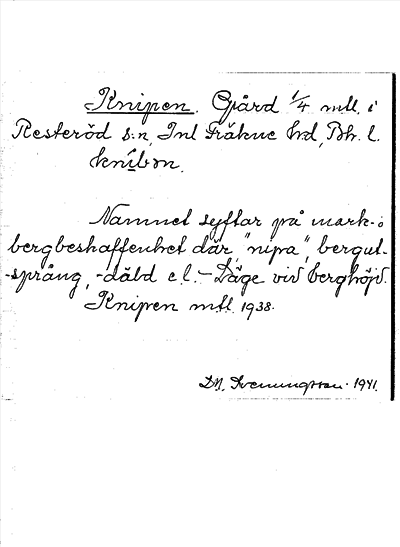 Knipen. Gård 1/4 mtl. i
Resteröd s:n, Inl Fräkne hd, Bh. l.
knibən.
Namnet syftar på mark- o
bergbeskaffenhet där, "nipa", bergut-
-språng, -däld e.l. - Läge vid berghöjd.
Knipen mtl. 1938.
Svenungsson. 1941.